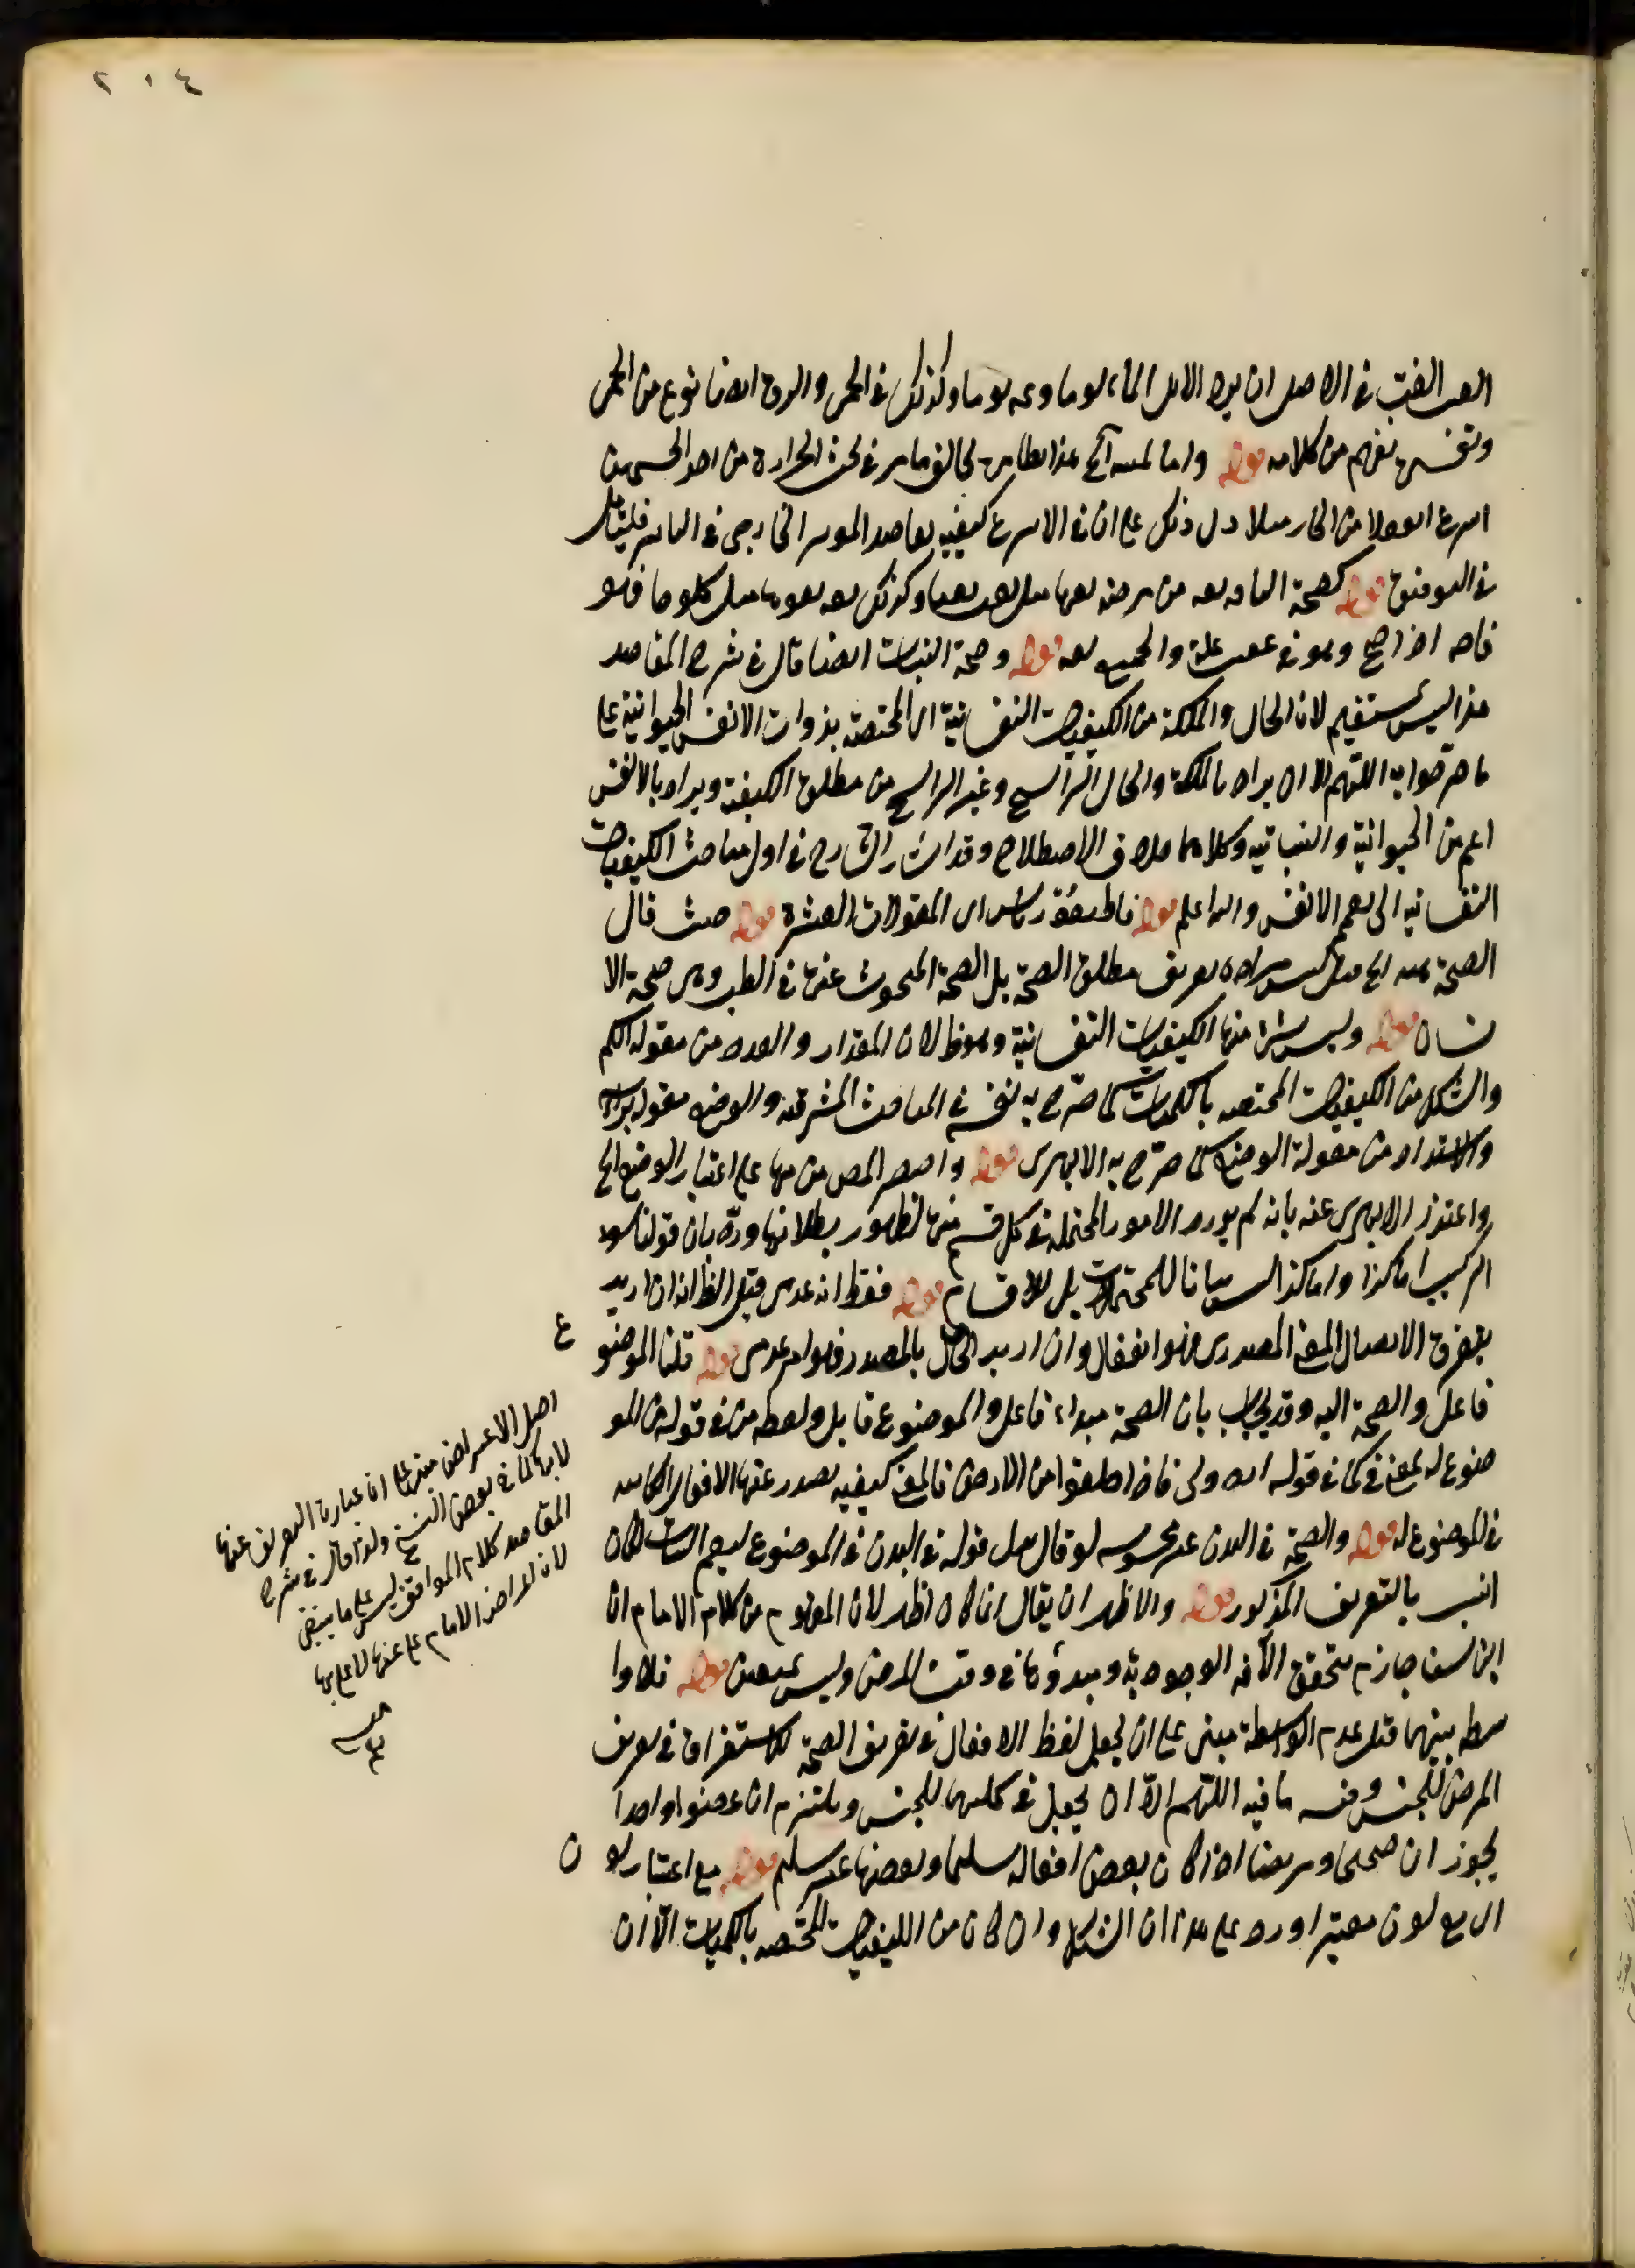 ٢٠٤
الغب الغب في الاصل ان يرد الابل الماء يوما وعه يوما وكذلك في الحمى والربع ايضا نوع من الحمى
يفهم من كلامه قوله واما هذا بظاهره يخالف ما مر في بحث الحرارة من احد الجسمين
اسرع انفعالا من الحار مثلا دل ذلك على ان في الاسرع كيفية تعاضد المؤثر الخارجي في التاثير فليتأمل
في التوفيق قوله كصحة الناقه نقه من مرضه نقها مثل تعب تعبا وكذلك نقه نقوها مثل كلح كلوحا فهو
ناقه اذا صح وهو في عقب علة والجمع نقه قوله وصحة النبات ايضا قال في شرح المقاصد
هذا ليس بمستقيم لان الحال والملكة من الكيفيات النفسانية اى المختصة بذوات الانفس الحيوانية على
ما صرحوا به اللهم الا ان يراد بالملكة والحال الراسخ وغير الراسخ من مطلق الكيفية ويراد بالانفس
اعم من الحيوانية والنباتية وكلاهما خلاف الاصطلاح وقد اشار الشارح في اول مباحث الكيفيات
النفسانية الى تعميم الانفس والله اعلم قوله قاطيغورياس اى المقولات العشرة قوله حيث قال
الصحة الخ قيل ليس مراده تعريف مطلق الصحة بل الصحة المبحوث عنها في الطب وهى صحة الا
نسان قوله وليس شئ منها من الكيفيات النفسانية وهو ظ لان المقدار والعدد من مقولة الكم
والشكل من الكيفيات المختصة بالكميات كما صرح به نفسه في المباحث المشرقية والوضع مقولة براسه
والانسداد من مقولة الوضع كما صرح به الابهرى قوله واقتصر المص من على اعتبار الوضع الخ
واعتذر الابهرى عنه بانه لم يورد الامور المحتملة في كل قسم منها لظهور بطلانها ورد بان قولنا سوء
التركيب اما كذا واما كذا ليس بيانا للمحتملات بل للاقسام قوله فقط انه عدمى قيل الظ انه ان اريد
بتفرق الاتصال المعنى المصدرى فهو انفعال وان اريد الحاصل بالمصدر فهو امر عدمى قوله قلنا الموضو
ع
فاعل والصحة آلية وقد يجاب بان الصحة مبداء فاعل والموضوع قابل ولفظه من في قوله من المو
ضوع له بمعنى في كما في قوله اروني ماذا خلقوا من الارض فالمعنى كيفية يصدر عنها الافعال الكائنة
في الموضوع له قوله والصحة في البدن غير محسوسة لو قال بدل قوله في البدن في الموضوع ليعم النبات لكان
انسب بالتعريف المذكور قوله والاظهر ان يقال انما كان اظهر لان المفهوم من كلام الامام ان
ابن سينا جازم بتحقق الآفة الوجودية ومبدؤها في وقت المرض وليس بمعين قوله فلا وا
سطة بينهما قيل عدم الواسطة مبنى على ان يجعل لفظ الافعال في تعريف الصحة للاستغراق في تعريف
المرض للجنس وفيه ما فيه اللهم الا ان يجعل في كليهما للجنس ويلتزم ان عضوا واحدا
يجوز ان صحيحا ومريضا اذا كان بعض افعاله سليما وبعضها غير سليم قوله مع اعتبار لو
ن
اى مع لون معتبر اورد على هذا ان الشكل وان كان من الكيفيات المختصة بالكميات الا ان
اصل الاعتراض انما عبارة التعريف عنها
لا بها كما في بعض النسخ ولذا قال في شرح
المقاصد كلام المواقف ليس على ما ينبغى
لان اعتراض الامام على عنها لا على بها
منه